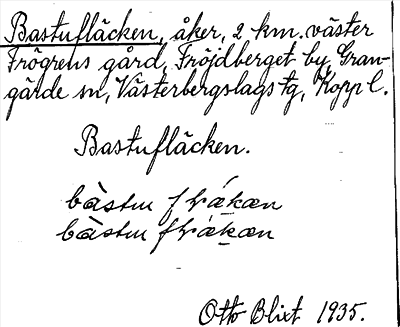 Bastufläcken, åker, 2 km. väster
Frögrens gård, Fröjdberget by, Gran-
gärde sn, Västerbergslags tg, Kopp l.
Bastufläcken.
bàstu
bàstu
Otto Blixt 1935.